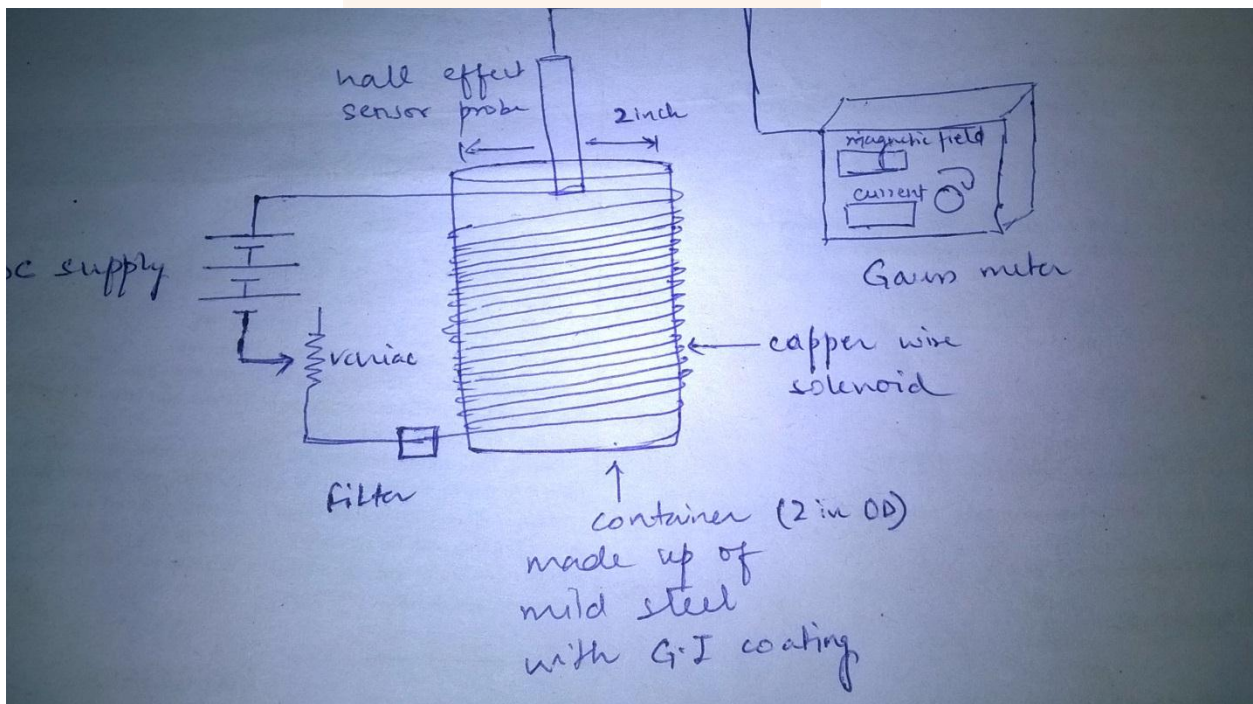 hall effect
sensor probe
2 inch
magnetic field
current
Gauss meter
DC supply
variac
filter
capper wire
solenoid
container (2 in OD)
made up of
mild steel
with G.I coating